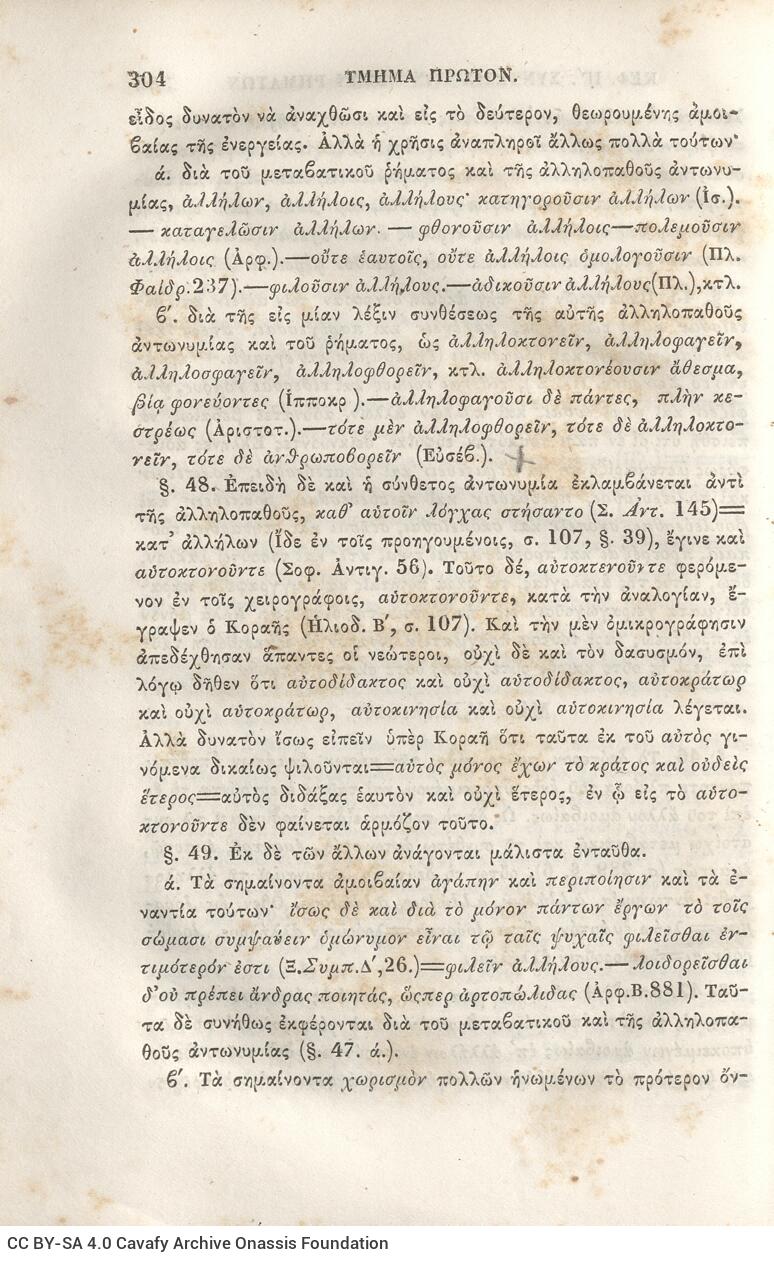 304 ΤΜΗΜΑ ΠΡΩΤΟΝ.
εἶδος δυνατὸν νὰ ἀναχθῶσι καὶ εἰς τὸ δεύτερον, θεωρουμένης ἀμοι-
βαίας τῆς ἐνεργείας. Ἀλλὰ ἡ χρῆσις ἀναπληροῖ ἄλλως πολλὰ τούτων·
ά. διὰ τοῦ μεταβατικοῦ ῥήματος καὶ τῆς ἀλληλοπαθοῦς ἀντωνυ-
μίας, ἀλλήλων, ἀλλήλοις, ἀλλήλους· κατηγοροῦσιν ἀλλήλων (Ἰσ.).
— καταγελῶσιν ἀλλήλων. — φθονοῦσιν ἀλλήλοις—πολεμοῦσιν
ἀλλήλοις (Ἀρφ.).—οὔτε ἑαυτοῖς, οὔτε ἀλλήλοις ὁμολογοῦσιν (Πλ.
Φαίδρ.237).—φιλοῦσιν ἀλλήλους.—ἀδικοῦσιν ἀλλήλους(Πλ.),κτλ.
β´. διὰ τῆς εἰς μίαν λέξιν συνθέσεως τῆς αὐτῆς ἀλληλοπαθοῦς
ἀντωνυμίας καὶ τοῦ ῥήματος, ὡς ἀλληλοκτονεῖν, ἀλληλοφαγεῖν,
ἀλληλοσφαγεῖν, ἀλληλοφθορεῖν, κτλ. ἀλληλοκτονέουσιν ἄθεσμα,
βίᾳ φονεύοντες (Ἱπποκρ ).—ἀλληλοφαγοῦσι δὲ πάντες, πλὴν κε-
στρέως (Ἀριστοτ.).—τότε μὲν ἀλληλοφθορεῖν, τότε δὲ ἀλληλοκτο-
νεῖν, τότε δὲ ἀνθρωποβορεῖν (Εὐσέβ.).
§. 48. Ἐπειδὴ δὲ καὶ ἡ σύνθετος ἀντωνυμία ἐκλαμβάνεται ἀντὶ
τῆς ἀλληλοπαθοῦς, καθ’ αὑτοῖν λόγχας στήσαντο (Σ. Ἀντ. 145)=
κατ’ ἀλλήλων (Ἴδε ἐν τοῖς προηγουμένοις, σ. 107, §. 39), ἔγινε καὶ
αὑτοκτονοῦντε (Σοφ. Ἀντιγ. 56). Τοῦτο δέ, αὐτοκτενοῦντε φερόμε-
νον ἐν τοῖς χειρογράφοις, αὑτοκτονοῦντε, κατὰ τὴν ἀναλογίαν, ἔ-
γραψεν ὁ Κοραῆς (Ἡλιοδ. Β´, σ. 107). Καὶ τὴν μὲν ὀμικρογράφησιν
ἀπεδέχθησαν ἅπαντες οἱ νεώτεροι, οὐχὶ δὲ καὶ τὸν δασυσμόν, ἐπὶ
λόγῳ δῆθεν ὅτι αὐτοδίδακτος καὶ οὐχὶ αὑτοδίδακτος, αὐτοκράτωρ
καὶ οὐχὶ αὑτοκράτωρ, αὐτοκινησία καὶ οὐχὶ αὑτοκινησία λέγεται.
Ἀλλὰ δυνατὸν ἴσως εἰπεῖν ὑπὲρ Κοραῆ ὅτι ταῦτα ἐκ τοῦ αὐτὸς γι-
νόμενα δικαίως ψιλοῦνται=αὐτὸς μόνος ἔχων τὸ κράτος καὶ οὐδεὶς
ἕτερος=αὐτὸς διδάξας ἑαυτὸν καὶ οὐχὶ ἕτερος, ἐν ᾧ εἰς τὸ αὑτο-
κτονοῦντε δὲν φαίνεται ἁρμόζον τοῦτο.
§. 49. Ἐκ δὲ τῶν ἄλλων ἀνάγονται μάλιστα ἐνταῦθα.
ά. Τὰ σημαίνοντα ἀμοιβαίαν ἀγάπην καὶ περιποίησιν καὶ τὰ ἐ-
ναντία τούτων· ἴσως δὲ καὶ διὰ τὸ μόνον πάντων ἔργων τὸ τοῖς
σώμασι συμψαύειν ὁμώνυμον εἶναι τῷ ταῖς ψυχαῖς φιλεῖσθαι ἐν-
τιμότερόν ἐστι (Ξ.Συμπ.Δ´,26.)=φιλεῖν ἀλλήλους.—λοιδορεῖσθαι
δ’οὐ πρέπει ἄνδρας ποιητάς, ὥςπερ ἀρτοπώλιδας (Ἀρφ.Β.881). Ταῦ-
τα δὲ συνήθως ἐκφέρονται διὰ τοῦ μεταβατικοῦ καὶ τῆς ἀλληλοπα-
θοῦς ἀντωνυμίας (§. 47. ά.).
β´. Τὰ σημαίνοντα χωρισμὸν πολλῶν ἡνωμένων τὸ πρότερον ὄν-
CC BY-SA 4.0 Cavafy Archive Onassis Foundation